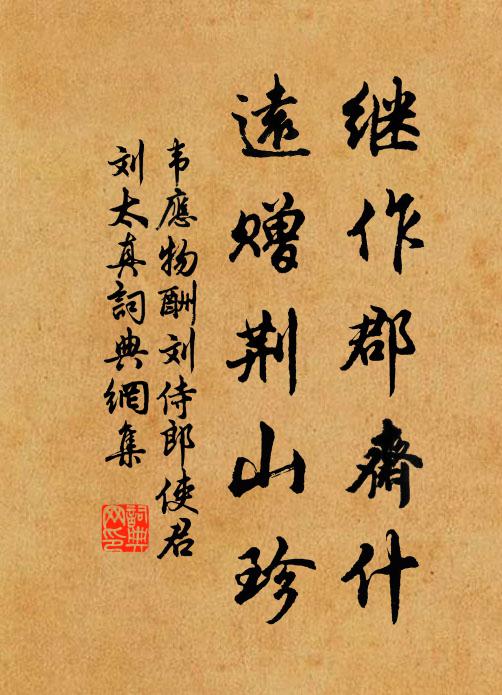 继作郡斋什
遠赠荆山珍
韦應物酬刘侍郎使君
刘太真詞典網集
詞典网印